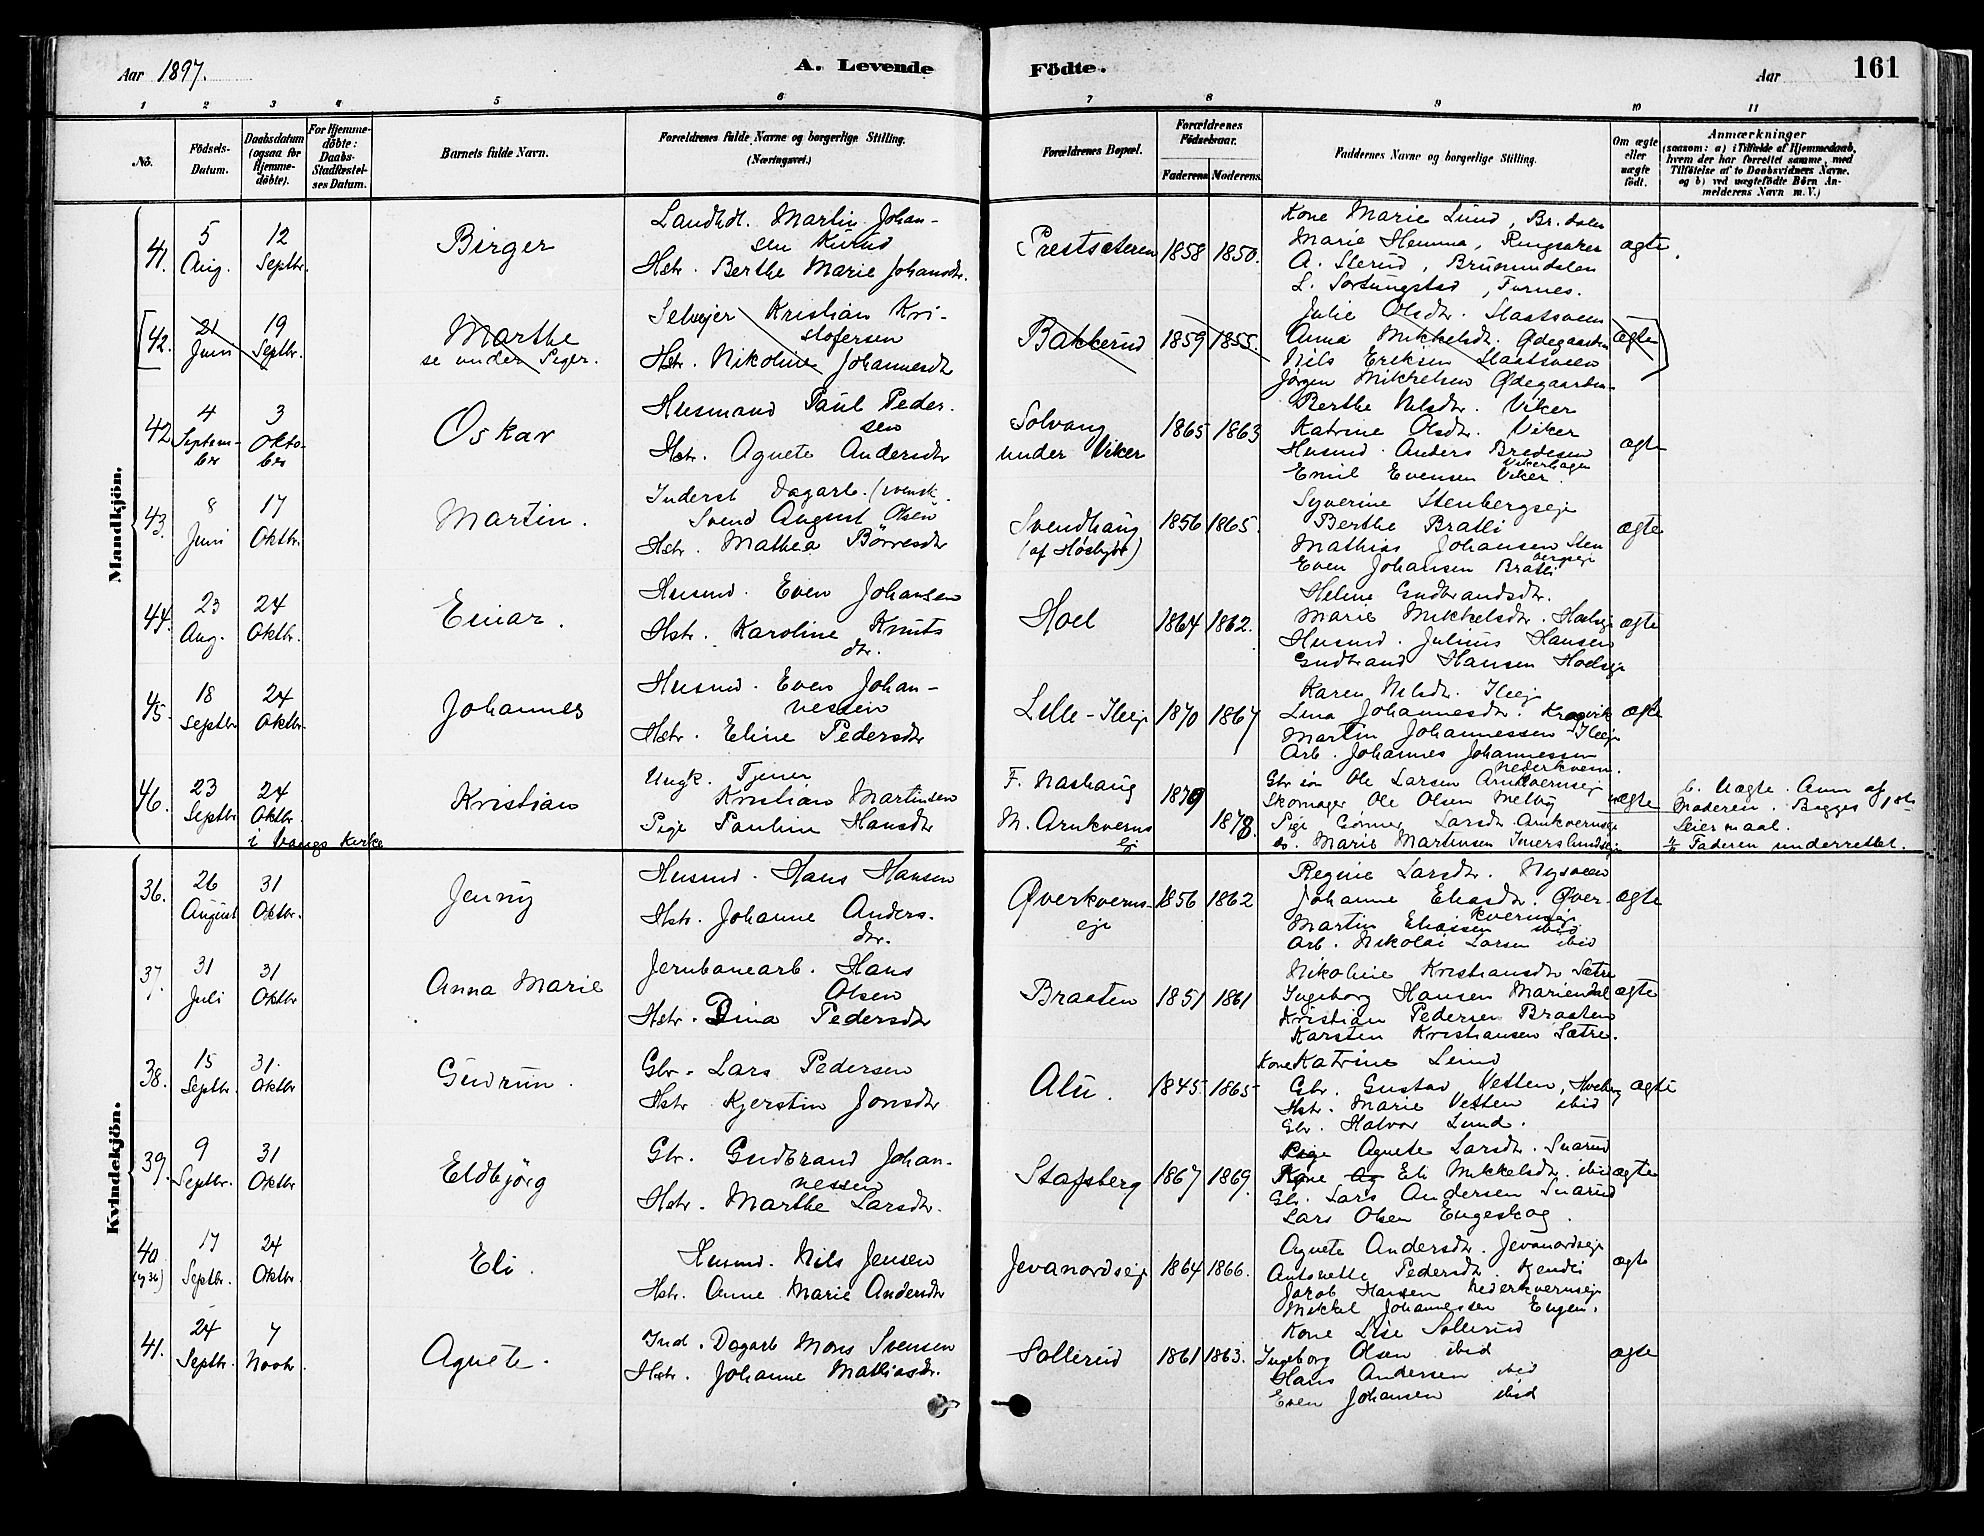 Aar 1897.
A. Levende
Födte.
Aar
161
1 2 3 4 5 6 7 8 9 10 11
No.
Födsels-Datum.
Daabsdatum (ogsaa for Hjemmedöbte).
For Hjemmedöbte: Daabs-Stadfæstelses Datum.
Barnets fulde Navn.
Forældrenes fulde Navne og borgerlige Stilling.
(Næringsvei.)
Forældrenes Bopæl.
Forældrenes Födselsaar.
Faderens Moderens.
Faddernes Navne og borgerlige Stilling.
Om ægte eller uægte født.
Anmærkninger
(saasom: a) i Tilfælde af Hjemmedaab, hvem der har forrettet samme, med Tilföielse af to Daabsvidners Navne, og b) ved uægtefödte Börn Anmelderens Navn m. V.)
Mandkjön.
41. 5 Aug. 12 Septbr. Birger
Landhdl. Martin Johansen
Hstr. Berthe Marie Johansdtr.
Prestsæteren 1858 1850.
Kone Marie Lund, Br.dalen
Marie Hemma, Ringsaker
A. Sterud, Brumundalen
L. Sørlungstad, Furnes.
ægte.
42. 21 Juni 19 Septbr. Marthe
se under Piger.
Selvejer Kristian Kristofersen
Hstr. Nikoline Johannesdtr
Bakkerud 1859 1855.
Julie Olsdtr. Staatsveen
Anna Mikkelsdtr. Ødegaarden
Nils Eriksen Staatsveen
Jørgen Mikkelsen Ødegaarden
ægte
42 4 September 3 Oktober Oskar
Husmand Paul Pedersen
Hstr. Agnete Andersdtr
Solvang under Viker 1865 1863
Berthe Nilsdtr. Viker
Katrine Olsdtr. Viker
Husmd. Anders Bredesen Vikerhagen
Emil Evensen Viker.
ægte
43. 8 Juni 17 Oktbr. Martin.
Inderst Dagarb. (svensk.
Svend August Olsen
Hstr. Mathea Børresdtr
Svendhaug (af Høsbjør) 1856 1865.
Syverine Stenbergseje
Berthe Bratli
Mathias Johansen Stenbergseje
Even Johansen Bratli
ægte
44. 23 Aug. 24 Oktbr. Einar.
Husmd. Even Johansen
Hstr. Karoline Knutsdtr.
Hoel 1864 1862.
Helene Gudbrandsdtr.
Marie Mikkelsdtr. Hoelseje
Husmd. Julius Hansen
Gudbrand Hansen Hoelseje
ægte
45. 18 Septbr 24 Oktbr. Johannes
Husmd. Even Johannessen
Hstr. Eline Pedersdtr
Lille-Ileeje 1870 1867
Karen Nilsdtr. Ileeje
Lina Johannesdtr. Kragvik
Martin Johannessen Ileeje
Arb. Johannes Johannessen Nederkvern.
ægte
46. 23 Septbr 24 Oktbr. i Vangs Kirke Kristian
Ungk. Tjener
Kristian Martinsen
Pige Pauline Hansdtr
F. Nashaug
M. Arnkvernsej 1879 1878.
Gbr søn Ole Larsen Arnkvernsej
Skomager Ole Olsen Melby
Pige Gunner Larsdtr. Arnkvernseje
do. Marie Martinsen Imerslundseje
uægte
b. Uægte. Anm. af
Moderen. Begges 1ste
Leiermaal.
Faderen underrettet.
Kvindekjön.
36. 26 August 31 Oktbr. Jenny
Husmd. Hans Hansen
Hstr. Johanne Andersdtr.
Øverkvernseje 1856 1862
Regine Larsdtr. Nysveen
Johanne Eliasdtr. Øverkvernseje
Martin Eliassen ibid
Arb. Nikolai Larsen ibid
ægte
37. 31 Juli 31 Oktbr Anna Marie
Jernbanearb. Hans Olsen
Hstr. Dina Pedersdtr
Braaten 1851 1861
Nikoline Kristiansdtr Sætre
Ingeborg Hansen Mariendal
Kristian Pedersen Braaten
Karsten Kristiansen Sætre.
ægte
38. 15 Septbr. 31. Oktbr Gudrun.
Gbr. Lars Pedersen
Hstr Kjerstin Jonsdtr
Alu. 1845 1865
Kone Katrine Lund
Gbr. Gustav Vetten, Hveberg
Hstr. Marie Vetten ibid
Gbr. Halvor Lund.
ægte
39. 9 Septbr. 31 Oktbr Eldbjörg
Gbr. Gudbrand Johannessen
Hstr. Marthe Larsdtr.
Stafsberg 1867 1869.
Pige Agnete Larsdtr. Snarud
Kone Eli Mikkelsdtr. ibid
Gbr. Lars Andersen Snarud
Lars Olsen Engeskog.
ægte
40 17 Septbr. 24 Oktbr. Eli.
Husmd. Nils Jensen
Hstr. Anne Marie Andersdtr
Jevanordseje 1864 1866.
Agnete Andersdtr. Jevanordseje
Antonette Pedersdtr Kendli
Jakob Hansen Nederkvernseje
Mikkel Johannessen Engen.
ægte
41. 24 Septbr. 7 Novbr. Agnete.
Ind. Dagarb Mons Svensen
Hstr. Johanne Mathiasdtr.
Sollerud 1861 1863.
Kone Lise Sollerud
Ingeborg Olsen ibid
Hans Andersen ibid
Even Johansen ibid
ægte